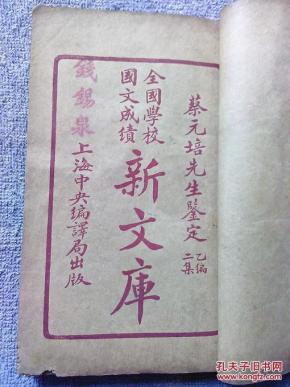 蔡元培先生鑒定
乙編
二集
全國學校
國文成績
新文庫
上海中央編譯局出版
錢錫泉
孔夫子旧书网